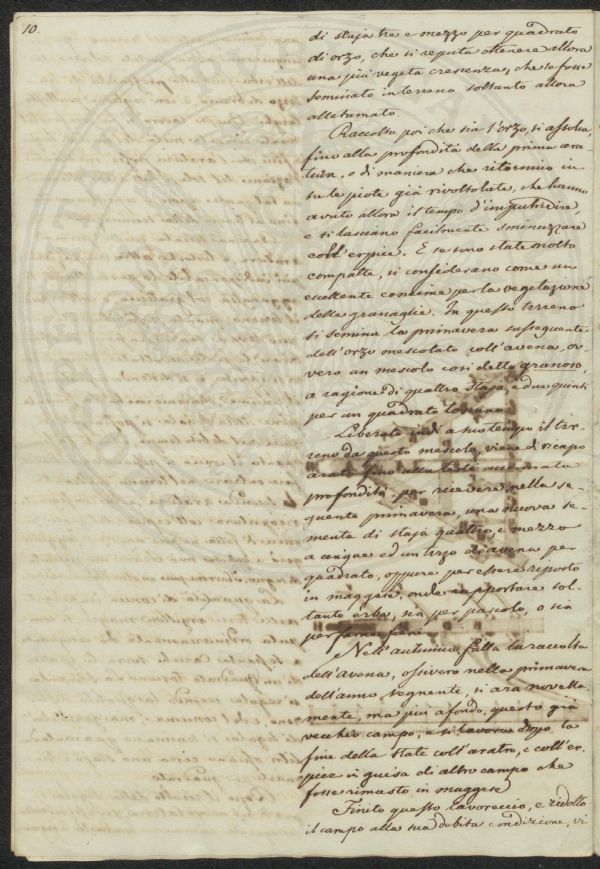 10.
di staja tre e mezzo per quadrato
di orzo, che si reputa ottenere allora
una più vegeta crescenza, che se fosse
seminato in terreno soltanto allora
alletamato.
Raccolto poi che sia l'orzo, si assolca,
fino alla profondità della prima ara-
tura, e di maniera che ritornino in
su le piote già rivoltolate, che hanno
avuto allora il tempo d'imputridire,
e si lasciano facilmente sminuzzare
coll'erpice. E se sono state molto
compatte, si considerano come un
eccellente concime per la vegetazione
delle granaglie. In questo terreno
si semina la primavera susseguente
dell'orzo mescolato coll'avena, ov-
vero un mescolo così detto granoso,
a ragione di quattro staja, e due quinti
per un quadrato toscano.
Liberato indi a suo tempo il ter-
reno da questo mescolo, viene di ricapo
arato fino alla testè accennata
profondità per ricevere, nella se-
guente primavera, una nuova se-
menta di staja quattro e mezzo
a cinque ed un terzo di avena per
quadrato, oppure per essere riposto
in maggese, onde rapportare sol-
tanto erba, sia per pascolo, o sia
per farne fieno.
Nell'autunno, fatta la raccolta
dell'avena, ossivero nella primavera
dell'anno seguente, si ara novella-
mente, ma più a fondo, questo già
vecchio campo, e si lavora dopo la
fine della state coll'aratro, e coll'er-
pice in guisa di altro campo che
fosse rimasto in maggese.
Finito questo lavoreccio, e ridotto
il campo alla sua debita condizione, vi